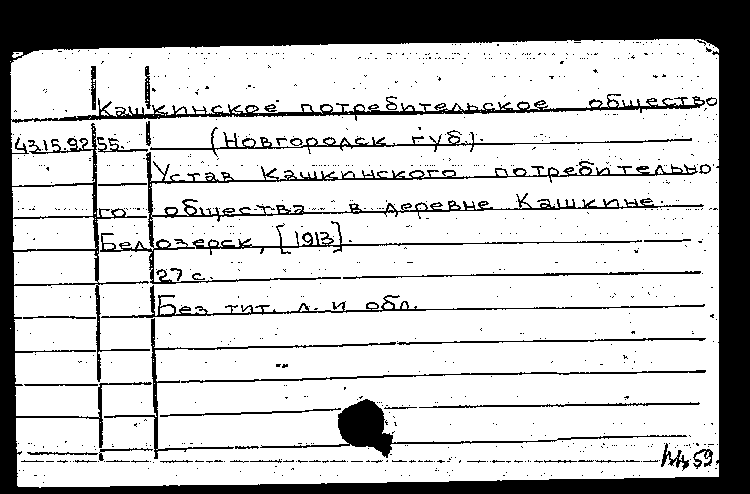 Кашкинское потребительское общество
43.15.92 55. (Новгородск. губ.).
Устав Кашкинского потребительно-
го общества в деревне Кашкине.
Белозерск, [1913].
27 с.
Без тит. л. и обл.
59.